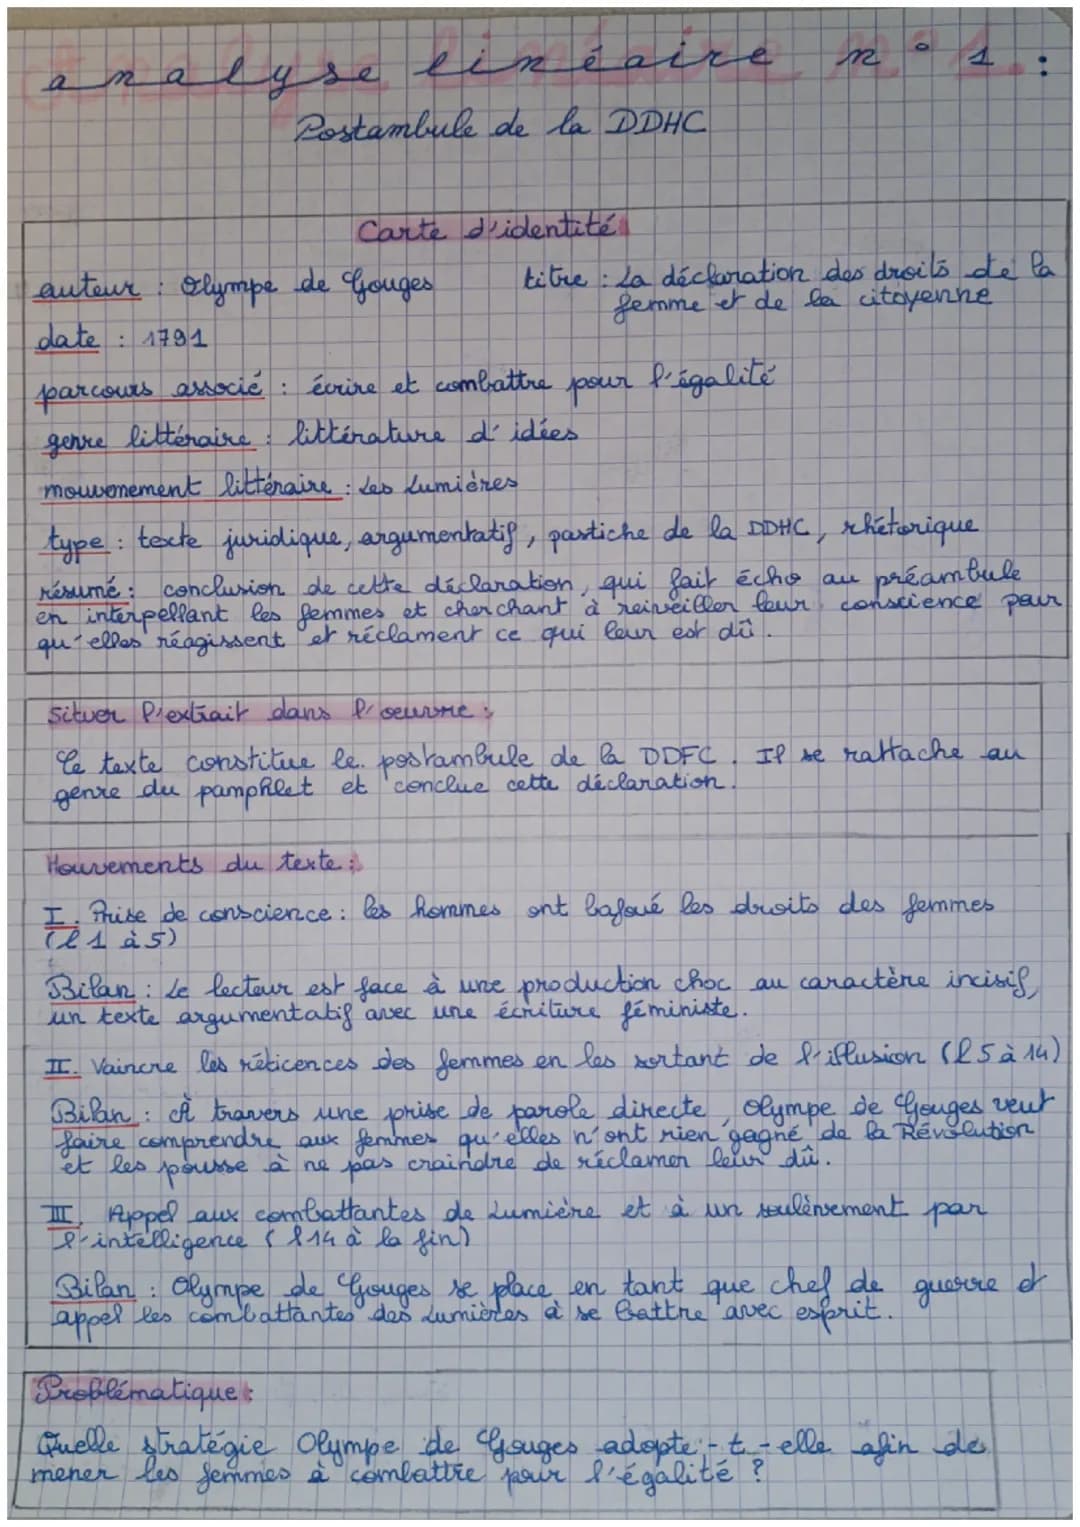 analyse linéaire n°1 :
Postambule de la DDHC
Carte d'identité
auteur : Olympe de Gouges titre : La déclaration des droits de la
femme et de la citoyenne
date : 1791
parcours associé : écrire et combattre pour l'égalité
genre littéraire : littérature d'idées
mouvement littéraire : Les Lumières
type : texte juridique, argumentatif, pastiche de la DDHC, rhétorique
résumé : conclusion de cette déclaration, qui fait écho au préambule
en interpellant les femmes et cherchant à reiveiller leur conscience pour
qu'elles réagissent et réclament ce qui leur est dû.
Situer l'extrait dans l'oeuvre :
Le texte constitue le postambule de la DDFC. Il se rattache au
genre du pamphlet et conclue cette déclaration.
Mouvements du texte :
I. Prise de conscience : les hommes ont bafoué les droits des femmes
(l 1 à 5)
Bilan : Le lecteur est face à une production choc au caractère incisif,
un texte argumentatif avec une écriture féministe.
II. Vaincre les réticences des femmes en les sortant de l'illusion (l 5 à 14)
Bilan : À travers une prise de parole directe, Olympe de Gouges veut
faire comprendre aux femmes qu'elles n'ont rien gagné de la Révolution
et les pousse à ne pas craindre de réclamer leur dû.
III. Appel aux combattantes de Lumière et à un soulèvement par
l'intelligence (l 14 à la fin)
Bilan : Olympe de Gouges se place en tant que chef de guerre et
appel les combattantes des Lumières à se battre avec esprit.
Problématique :
Quelle stratégie Olympe de Gouges adopte-t-elle afin de
mener les femmes à combattre pour l'égalité ?